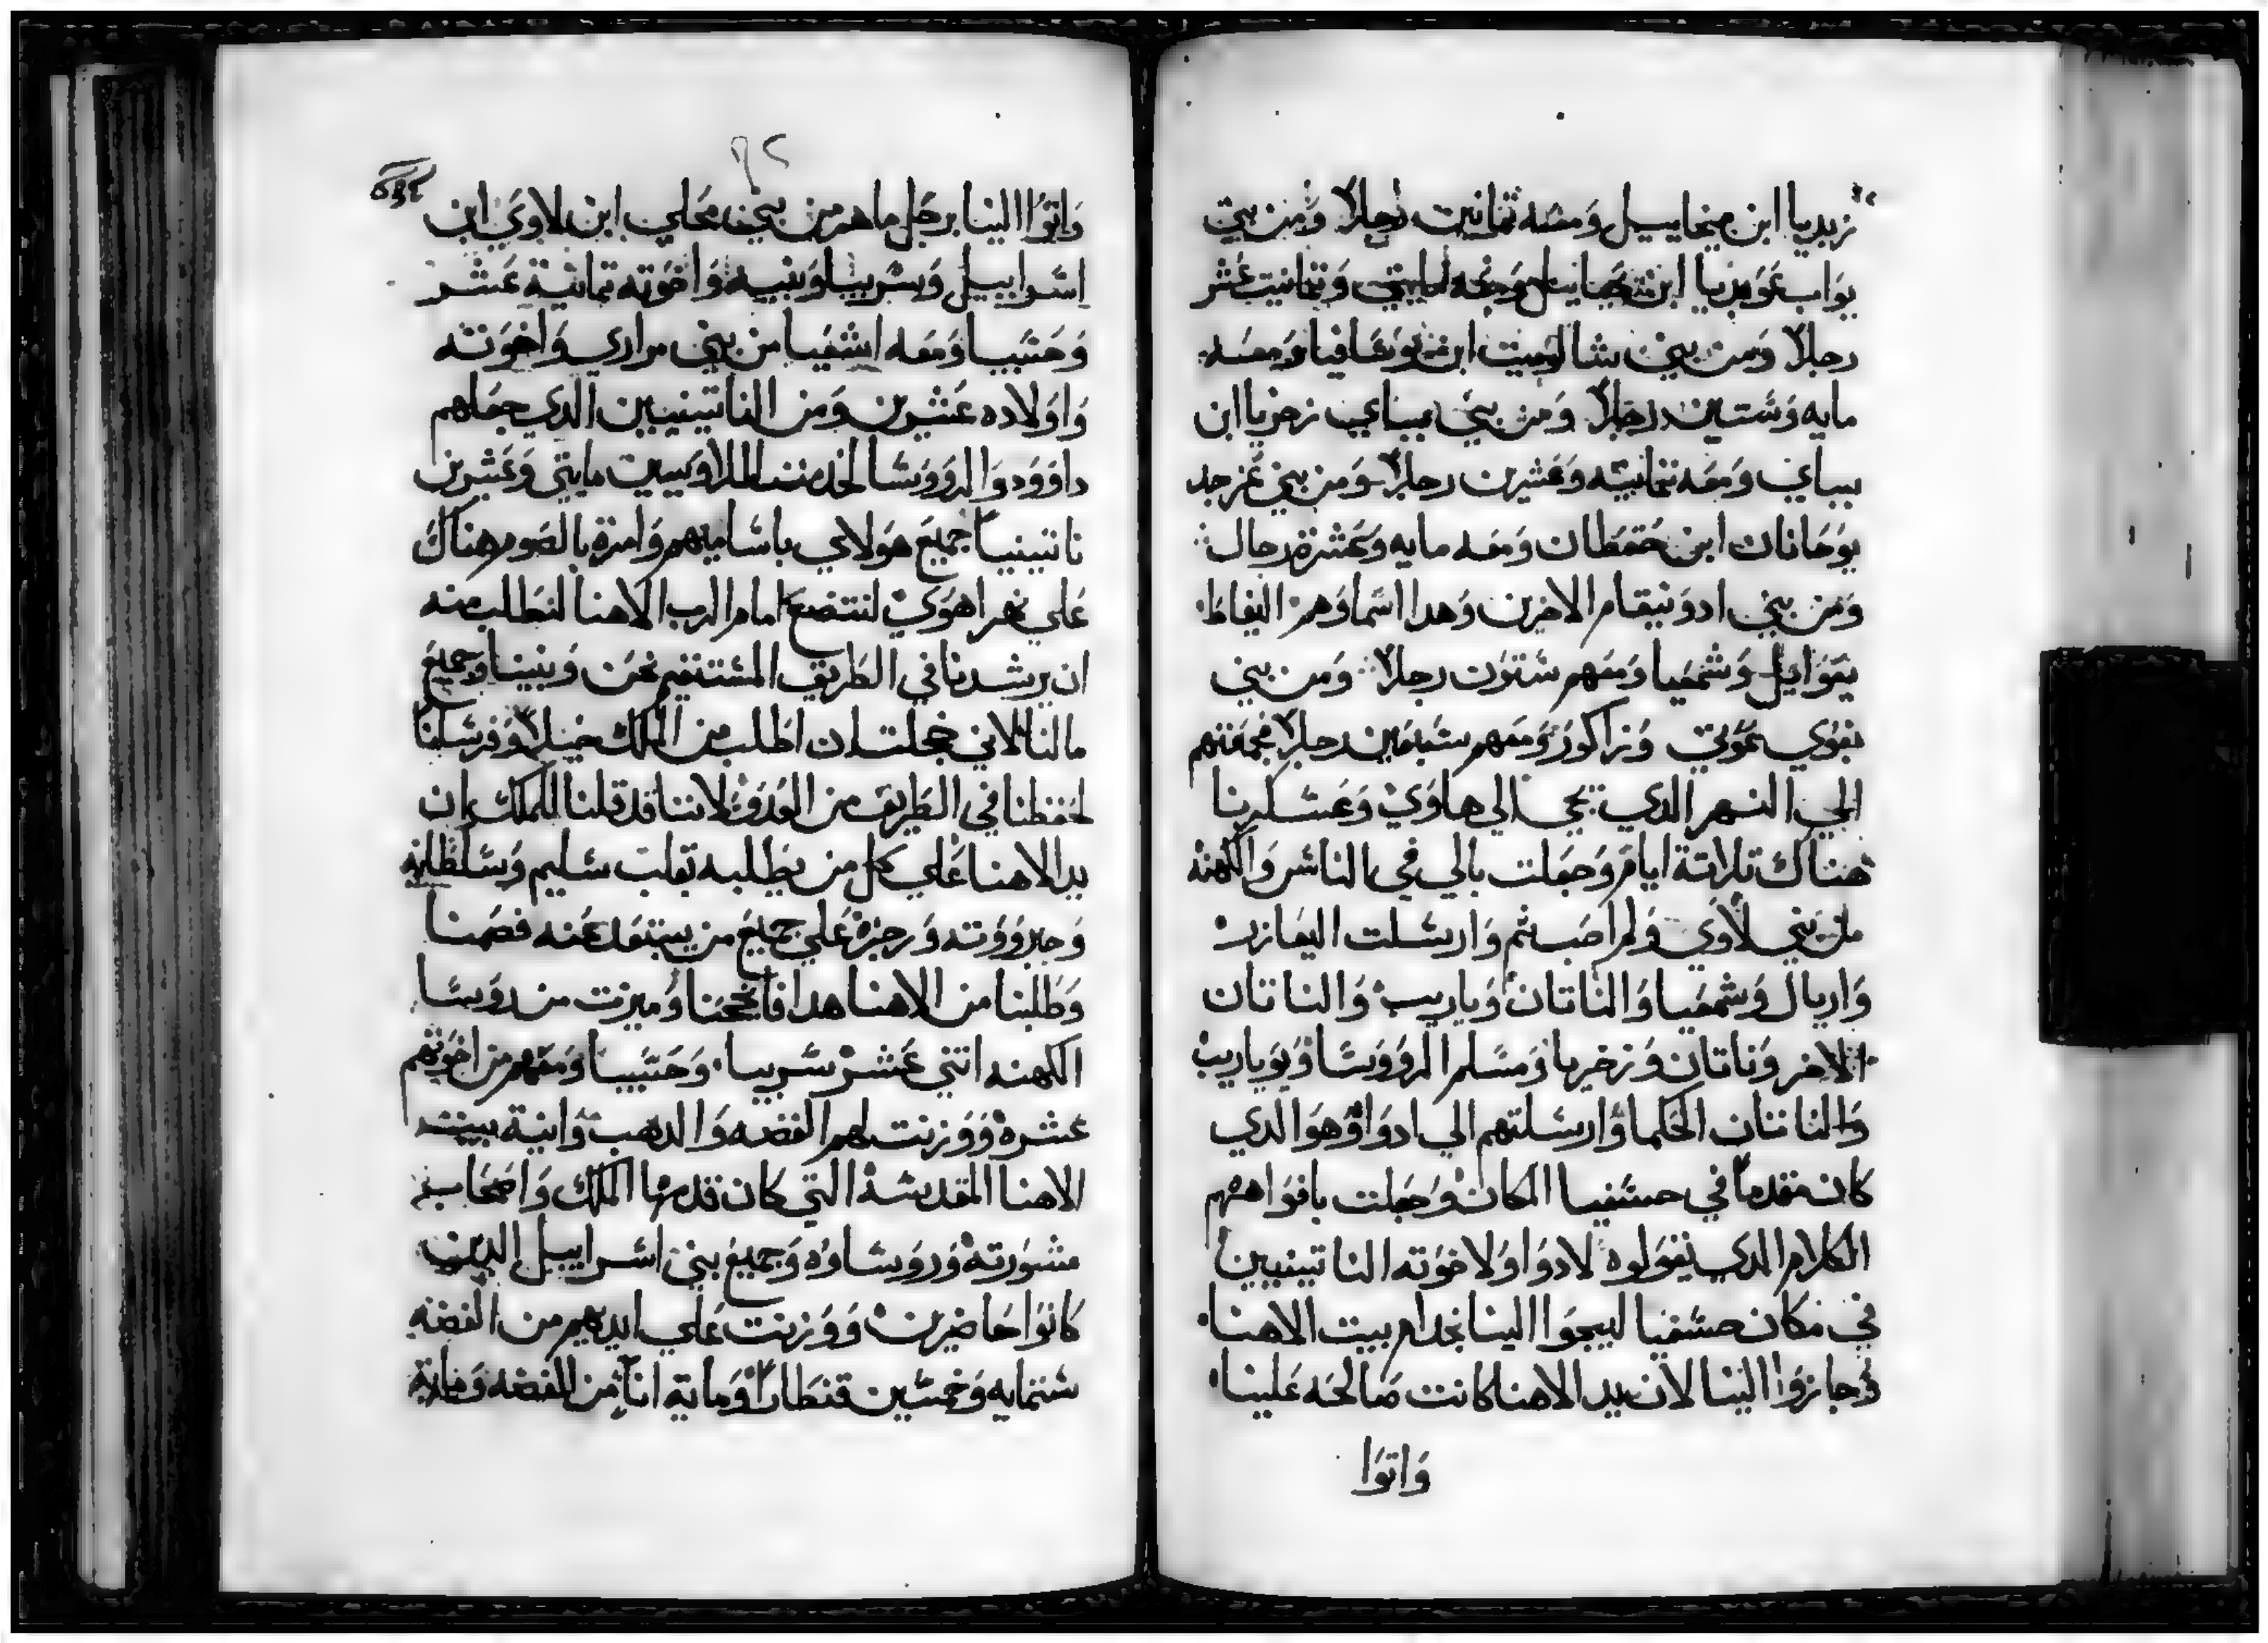 زبديا ابن ميخاييل ومعه تمانين رجلا ومن بني
يواب عوبديا ابن يحيانيل ومعه مايتي وتمانيت عشر
رجلا ومن بني شالوميت ابن يوعافيا ومعه
مايه وستين رجلا ومن بني بيباي زخريا ابن
بيباي ومعه تمانيه وعشرين رجلا ومن بني عزجد
يوحانان ابن حقطان ومعه مايه وعشرة رجال
ومن بني ادونيقام الاخرين وهدا اسماوهم اليفاط
يعواييل وشمعيا ومعهم ستون رجلا ومن بني
بغوي عوتي وزاكور ومعهم سبعين رجلا فجمعتهم
الي النهر الدي يجي الي هاوي وعسكرنا
هناك تلاتة ايام وجعلت بالي في الناس والكهنه
من بني لاوي ولم اصب تم وارسلت اليعازر
واريال وشمعيا والناتان وياريب والناتان
الاخر وناتان وزخريا ومسلم الرووسا ويوياريب
والناتان الحكما وارسلتهم الي ادوا وهو الدي
كان مقدما في حسفيا المكان وجعلت بافواههم
الكلام الدي يقولوه لادوا ولاخوته الناتينيين
في مكان حسفيا ليبجوا الينا بخدام بيت الاهنا
وجازوا الينا لان يد الاهنا كانت صالحه علينا
واتوا
٩٢
واتوا الينا برجل ماهر من بني محلي ابن لاوي ابن
اسراييل وسربيا وبنيه واخوته تمانية عشر
وحشبيا ومعه اشعيا من بني مراري واخوته
واولاده عشرين ومن الناتينيين الدي جعلهم
داوود والرووسا لخدمت اللاويين مايتي وعشرين
ناتينيا جميع هولاي باساميهم وامرة بالصوم هناك
علي نهر اهوي لنتضع امام الرب الاهنا لنطلب منه
ان يرشدنا في الطريق المستقيم نحن وبنينا وجميع
مالنا لاني خجلت ان اطلب من الملك خيلا وفرسانا
لحفظنا في الطريق من العدو لاننا قد قلنا للملك ان
يد الاهنا علي كل من يطلبه بقلب سليم وسلطانه
وجبرووته ورجزه علي جميع من يبتعد عنه فصمنا
وطلبنا من الاهنا هدا فانجحنا وميزت من روسا
الكهنه اتني عشر سربيا وحشبيا ومعهم من اخوتهم
عشره ووزنت لهم الفضه والدهب وانية بيت
الاهنا المقدسة التي كان قدمها الملك واصحاب
مشورته وروساوه وجميع بني اسراييل الدين
كانوا حاضرين ووزنت علي ايديهم من الفضه
ستمايه وخمسين قنطارا ومايه انا من الفضه ومايه